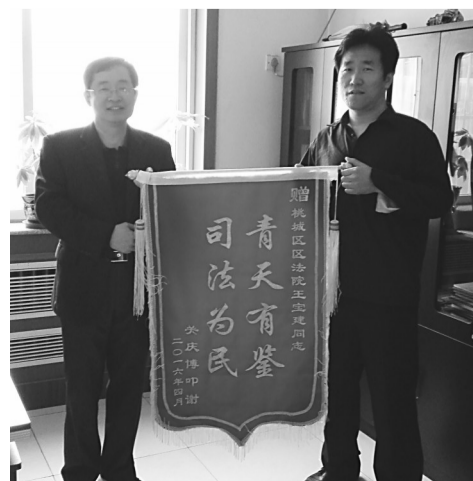 赠 桃城区区法院王宝建同志
青天有鉴
司法为民
关庆博叩谢
二〇一六年四月